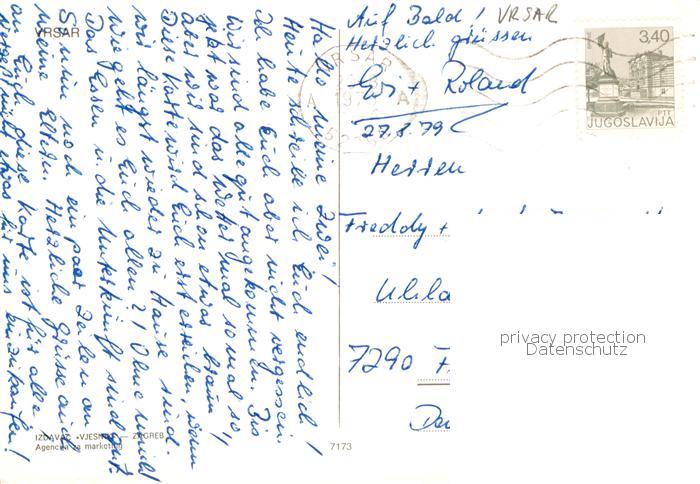 VRSAR
Hallo meine Zwei!
Heute schreibe ich Euch endlich!
Ich habe Euch aber nicht vergessen.
Wir sind alle gut angekommen. Bis
jetzt war das Wetter mal so mal so,
aber wir sind schon etwas braun.
Diese Karte wird Euch erst erreichen, wenn
wir längst wieder zu Hause sind.
Wie geht es Euch allen? Ohne
Das Essen u. die Unterkunft sind gut.
So nun noch ein paar Zeilen an
meine Eltern. Herzliche Grüsse auch
an Euch, diese Karte ist für alle.
Vergesst nicht etwas für uns einzukaufen!
IZDAVAČ «VJESNIK» — ZAGREB
Agencija za marketing
7173
Auf Bald! VRSAR
Herzlich grüssen
Evi + Roland
27.8.79
VRSAR
3,40
JUGOSLAVIJA
Herren
Freddy +
7290 F
privacy protection
Datenschutz